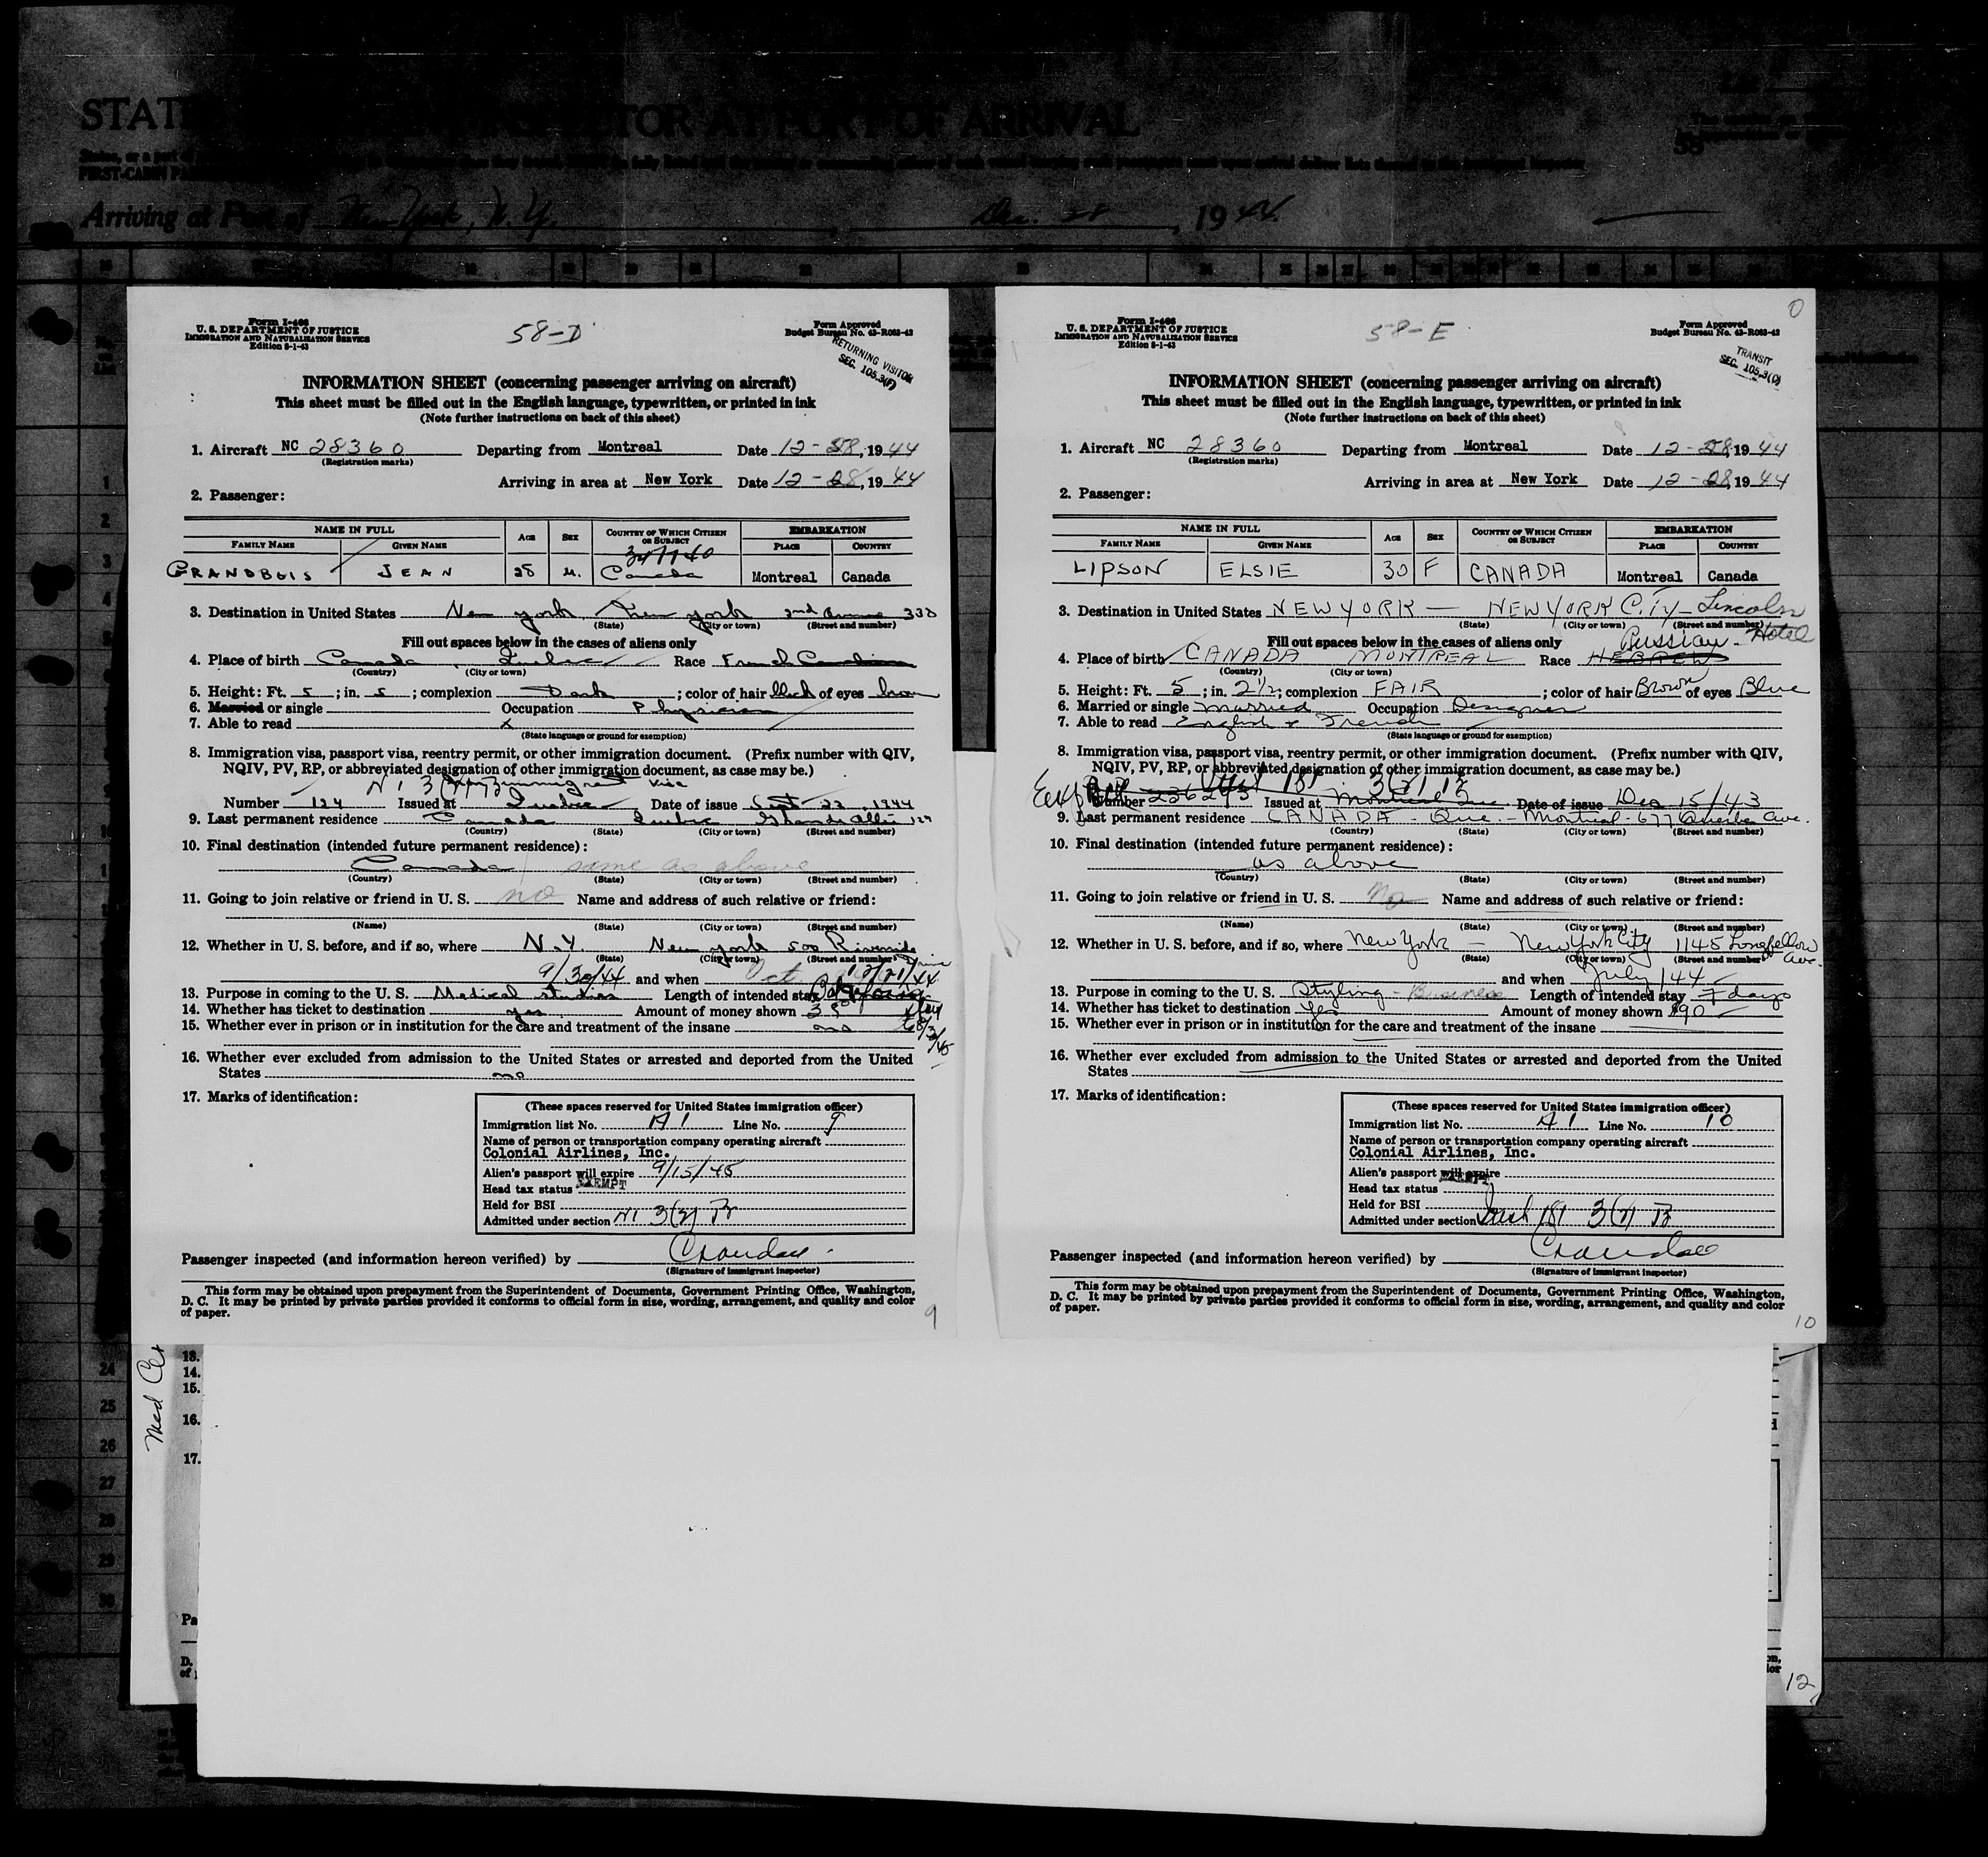 STAT
TOR AT PORT OF ARRIVAL
Arriving at Port of New York, N. Y. Dec. 28, 1944
Form I-466
U. S. DEPARTMENT OF JUSTICE
IMMIGRATION AND NATURALIZATION SERVICE
Edition 8-1-43
58-D
Form Approved
Budget Bureau No. 43-R063-42
RETURNING VISITOR
SEC. 105.3(F)
INFORMATION SHEET (concerning passenger arriving on aircraft)
This sheet must be filled out in the English language, typewritten, or printed in ink
(Note further instructions on back of this sheet)
1. Aircraft NC 28360 Departing from Montreal Date 12-28, 1944
(Registration marks)
Arriving in area at New York Date 12-28, 1944
2. Passenger:
NAME IN FULL AGE SEX COUNTRY OF WHICH CITIZEN OR SUBJECT EMBARKATION
FAMILY NAME GIVEN NAME PLACE COUNTRY
GRANDBOIS JEAN 28 M. Canada Montreal Canada
3. Destination in United States New york New york 2nd Avenue 330
(State) (City or town) (Street and number)
Fill out spaces below in the cases of aliens only
4. Place of birth Canada Quebec Race French Canadian
(Country) (City or town)
5. Height: Ft. 5; in. 5; complexion Dark; color of hair black of eyes brown
6. Married or single Occupation Physician
7. Able to read x
(State language or ground for exemption)
8. Immigration visa, passport visa, reentry permit, or other immigration document. (Prefix number with QIV,
NQIV, PV, RP, or abbreviated designation of other immigration document, as case may be.)
Number 124 Issued at Quebec Date of issue Sept 22, 1944
9. Last permanent residence Canada Quebec Grande Allée
(Country) (State) (City or town) (Street and number)
10. Final destination (intended future permanent residence):
Canada same as above
(Country) (State) (City or town) (Street and number)
11. Going to join relative or friend in U. S. no Name and address of such relative or friend:
(Name) (State) (City or town) (Street and number)
12. Whether in U. S. before, and if so, where N.Y. New york 500 Riverside Drive
(State) (City or town) (Street and number)
9/30/44 and when Oct 12/21/44
13. Purpose in coming to the U. S. Medical studies Length of intended stay
14. Whether has ticket to destination yes Amount of money shown 350
15. Whether ever in prison or in institution for the care and treatment of the insane no
16. Whether ever excluded from admission to the United States or arrested and deported from the United
States no
17. Marks of identification:
(These spaces reserved for United States immigration officer)
Immigration list No. A1 Line No. 9
Name of person or transportation company operating aircraft
Colonial Airlines, Inc.
Alien's passport will expire 9/15/45
Head tax status EXEMPT
Held for BSI
Admitted under section NI 3(2) B
Passenger inspected (and information hereon verified) by Crandall
(Signature of immigrant inspector)
This form may be obtained upon prepayment from the Superintendent of Documents, Government Printing Office, Washington,
D. C. It may be printed by private parties provided it conforms to official form in size, wording, arrangement, and quality and color
of paper.
9
Form I-466
U. S. DEPARTMENT OF JUSTICE
IMMIGRATION AND NATURALIZATION SERVICE
Edition 8-1-43
58-E
0
Form Approved
Budget Bureau No. 43-R063-42
TRANSIT
SEC. 105.3(D)
INFORMATION SHEET (concerning passenger arriving on aircraft)
This sheet must be filled out in the English language, typewritten, or printed in ink
(Note further instructions on back of this sheet)
1. Aircraft NC 28360 Departing from Montreal Date 12-28, 1944
(Registration marks)
Arriving in area at New York Date 12-28, 1944
2. Passenger:
NAME IN FULL AGE SEX COUNTRY OF WHICH CITIZEN OR SUBJECT EMBARKATION
FAMILY NAME GIVEN NAME PLACE COUNTRY
LIPSON ELSIE 30 F CANADA Montreal Canada
3. Destination in United States NEW YORK — NEW YORK CITY - Lincoln Hotel
(State) (City or town) (Street and number)
Fill out spaces below in the cases of aliens only
4. Place of birth CANADA MONTREAL Race HEBREW Russian
(Country) (City or town)
5. Height: Ft. 5; in. 2 1/2; complexion FAIR; color of hair Brown of eyes Blue
6. Married or single Married Occupation Designer
7. Able to read English & French
(State language or ground for exemption)
8. Immigration visa, passport visa, reentry permit, or other immigration document. (Prefix number with QIV,
NQIV, PV, RP, or abbreviated designation of other immigration document, as case may be.)
Number 236293 Issued at Montreal Que. Date of issue Dec 15/43
9. Last permanent residence CANADA - Que. - Montreal - 677 Querbes Ave.
(Country) (State) (City or town) (Street and number)
10. Final destination (intended future permanent residence):
as above
(Country) (State) (City or town) (Street and number)
11. Going to join relative or friend in U. S. No Name and address of such relative or friend:
(Name) (State) (City or town) (Street and number)
12. Whether in U. S. before, and if so, where New York — New York City 1145 Longfellow Ave.
(State) (City or town) (Street and number)
and when July/44
13. Purpose in coming to the U. S. Styling - Business Length of intended stay 7 days
14. Whether has ticket to destination Yes Amount of money shown $90
15. Whether ever in prison or in institution for the care and treatment of the insane
16. Whether ever excluded from admission to the United States or arrested and deported from the United
States
17. Marks of identification:
(These spaces reserved for United States immigration officer)
Immigration list No. A1 Line No. 10
Name of person or transportation company operating aircraft
Colonial Airlines, Inc.
Alien's passport will expire
EXEMPT
Head tax status
Held for BSI
Admitted under section 181 3(2) B
Passenger inspected (and information hereon verified) by Crandall
(Signature of immigrant inspector)
This form may be obtained upon prepayment from the Superintendent of Documents, Government Printing Office, Washington,
D. C. It may be printed by private parties provided it conforms to official form in size, wording, arrangement, and quality and color
of paper.
10
13.
14.
15.
16.
17.
12